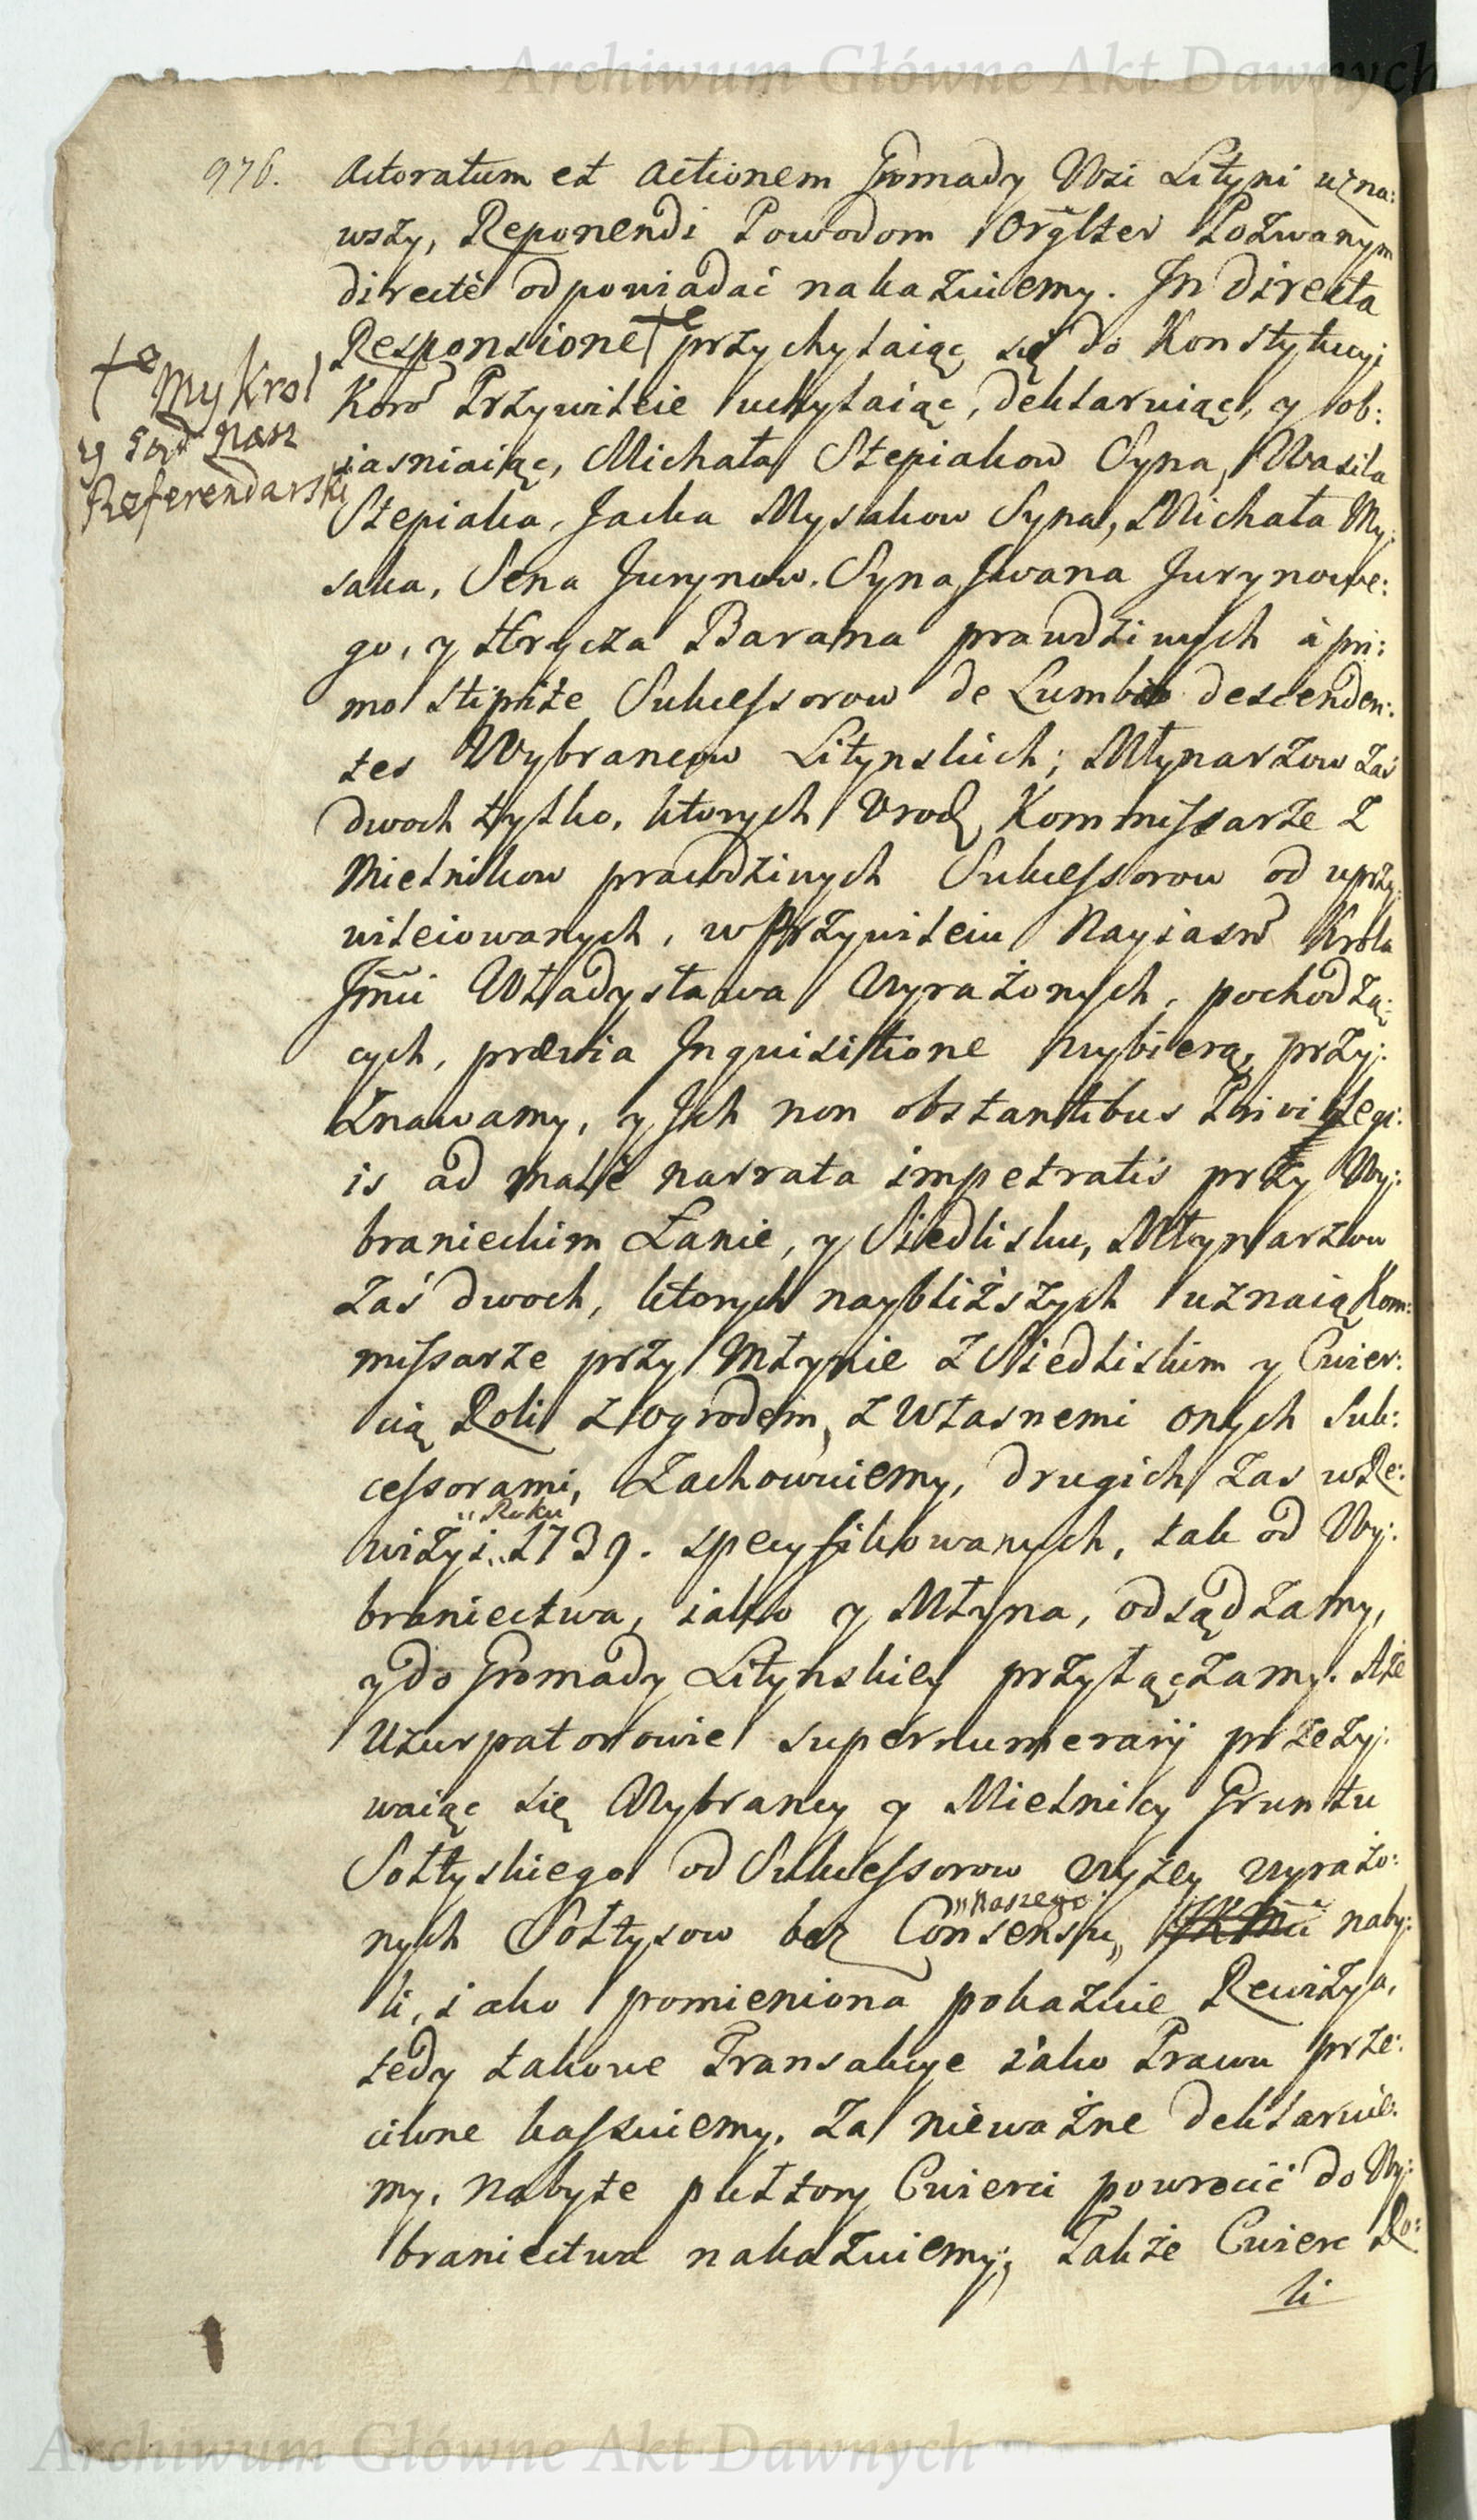 Archiwum Główne Akt Dawnych
976.
Actoratum et Actionem Gromady Wsi Lityni uzna:
wszy, Reponendi Powodom Oryglter Pozwanym
directè odpowiadać nakazuiemy. In directa
Responsione przychylaiąc się do Konstytucyi
Koro Przywileie uchylaiąc, deklaruiąc, y ob:
iasniaiąc, Michała Stepiakow Syna, Wasila
Stepiaka, Jacka Mysakow Syna, Michała My:
saka, Sena Jurynow. Syna Iwana Jurynowe:
go, y Hrycza Barana prawdziwych à pri:
mo stipite Sukcessorow de Lumbis descenden:
tes Wybrancow Litynskich; Młynarzow zaś
dwoch tylko, ktorych Urodz Kommissarze z
Mielnikow prawdziwych Sukcessorow od uprzy:
wileiowanych, w Przywileiu Nayiasn Krola
Jmci Władysława wyrażonych, pochodzą:
cych, prævia Inquisitione wybierą, przy:
znawamy, y Ich non obstantibus Privilegi:
is ad malè narrata impetratis przy Wy:
branieckim Łanie, y Siedlisku, Młynarzow
zaś dwoch, ktorych naybliższych uznaią Kom:
missarze przy Młynie z Siedliskim y Cwier:
cią Roli z ogrodem, z własnemi onych Suk:
cessorami, zachowuiemy, drugich zas w Re:
wizyi „Roku 1739. specyfikowanych, tak od Wy:
braniectwa, iako y Młyna, odsądzamy,
y do Gromady Litynskiey przyłączamy. Aże
Uzurpatorowie supernumerarij przezy:
waiąc się Wybrancy y Mielnicy Gruntu
Sołtyskiego od Sukcessorow wyżey wyrażo:
nych Sołtysow bez Consensu „Naszego naby:
li, iako pomieniona pokazuie Rewizya,
tedy takowe Transakcye iako Prawu prze:
ciwne kassuiemy, za nieważne deklaruie:
my, nabyte pułtory Cwierci powrocić do Wy:
braniectwa nakazuiemy; Także Cwierc Ro:
li
My Krol
y Sąd Nasz
Referendarski
Archiwum Główne Akt Dawnych